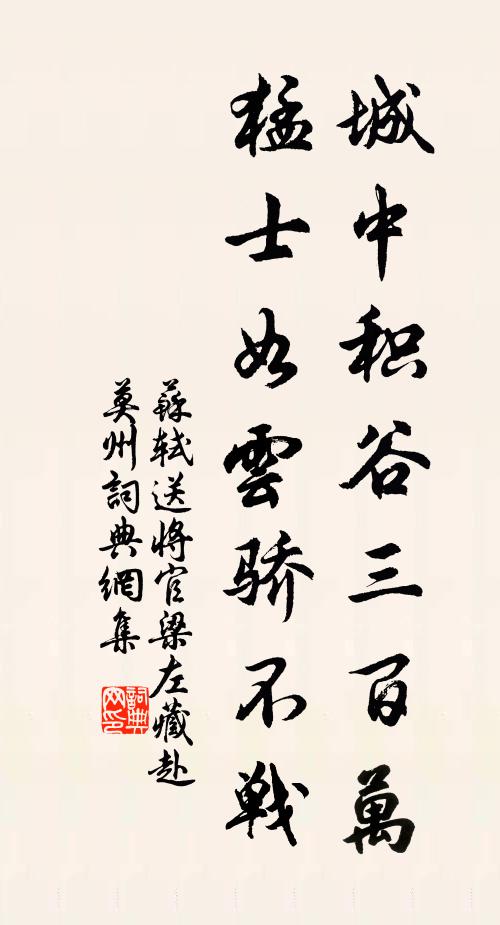 城中积谷三百萬
猛士如雲骄不戦
蘇軾送將官梁左藏赴
莫州詞典網集
詞典网印